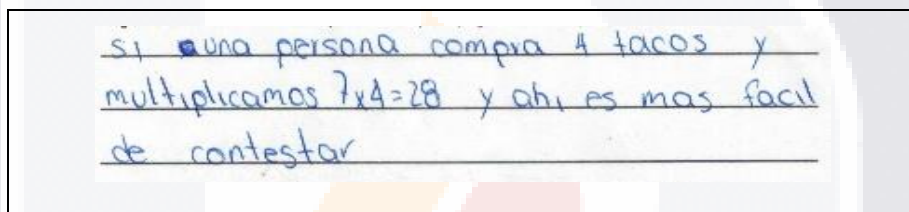 si una persona compra 4 tacos y
multiplicamos 7x4=28 y ahi es mas facil
de contestar